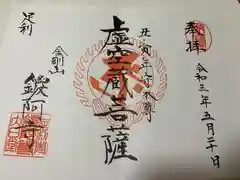 奉拝
令和三年五月二十日
丑寅年守本尊
虚空蔵菩薩
足利
金剛山
鑁阿寺